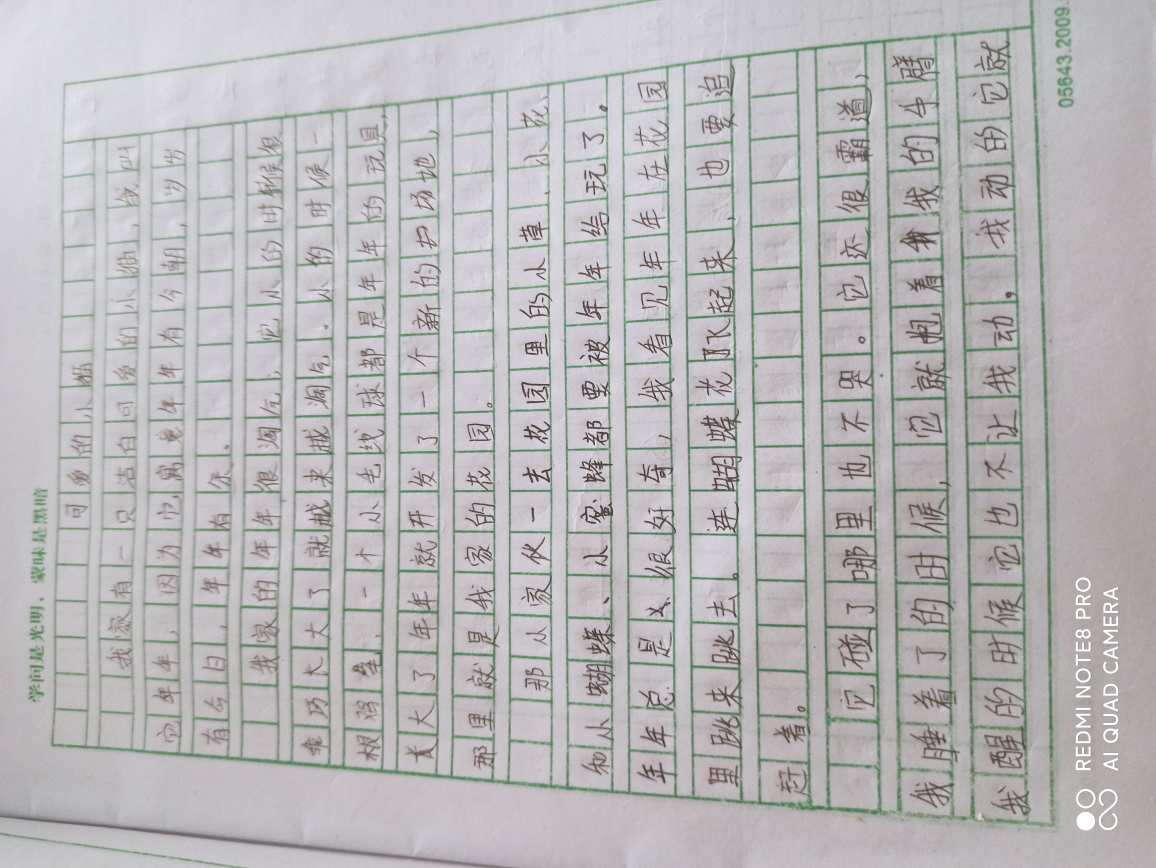 学问是光明,蒙昧是黑暗
可爱的小猫
我家有一只洁白可爱的小猫,我叫
它年年,因为它寓意年年有今朝,岁岁
有今日,年年有余。
我家的年年很淘气,它小的时候很
乖巧长大了就越来越淘气。小的时候一
根鸡毛,一个小毛线球都是年年的玩具,
长大了年年就开发了一个新的场地,
那里就是我家的花园。
那从家伙一去花园里的小草、小花、
和小蝴蝶、小蜜蜂都要被年年给玩了。
年年总是很好奇,我看见年年在花园
里跳来跳去。连蝴蝶花飞起来,也要追
赶着。
它碰了哪里也不哭。它还很霸道,
我睡着了的时候,它就抱着我的手臂
我醒的时候它也不让我动。我动的它就
05643.2009.
REDMI NOTE 8 PRO
AI QUAD CAMERA